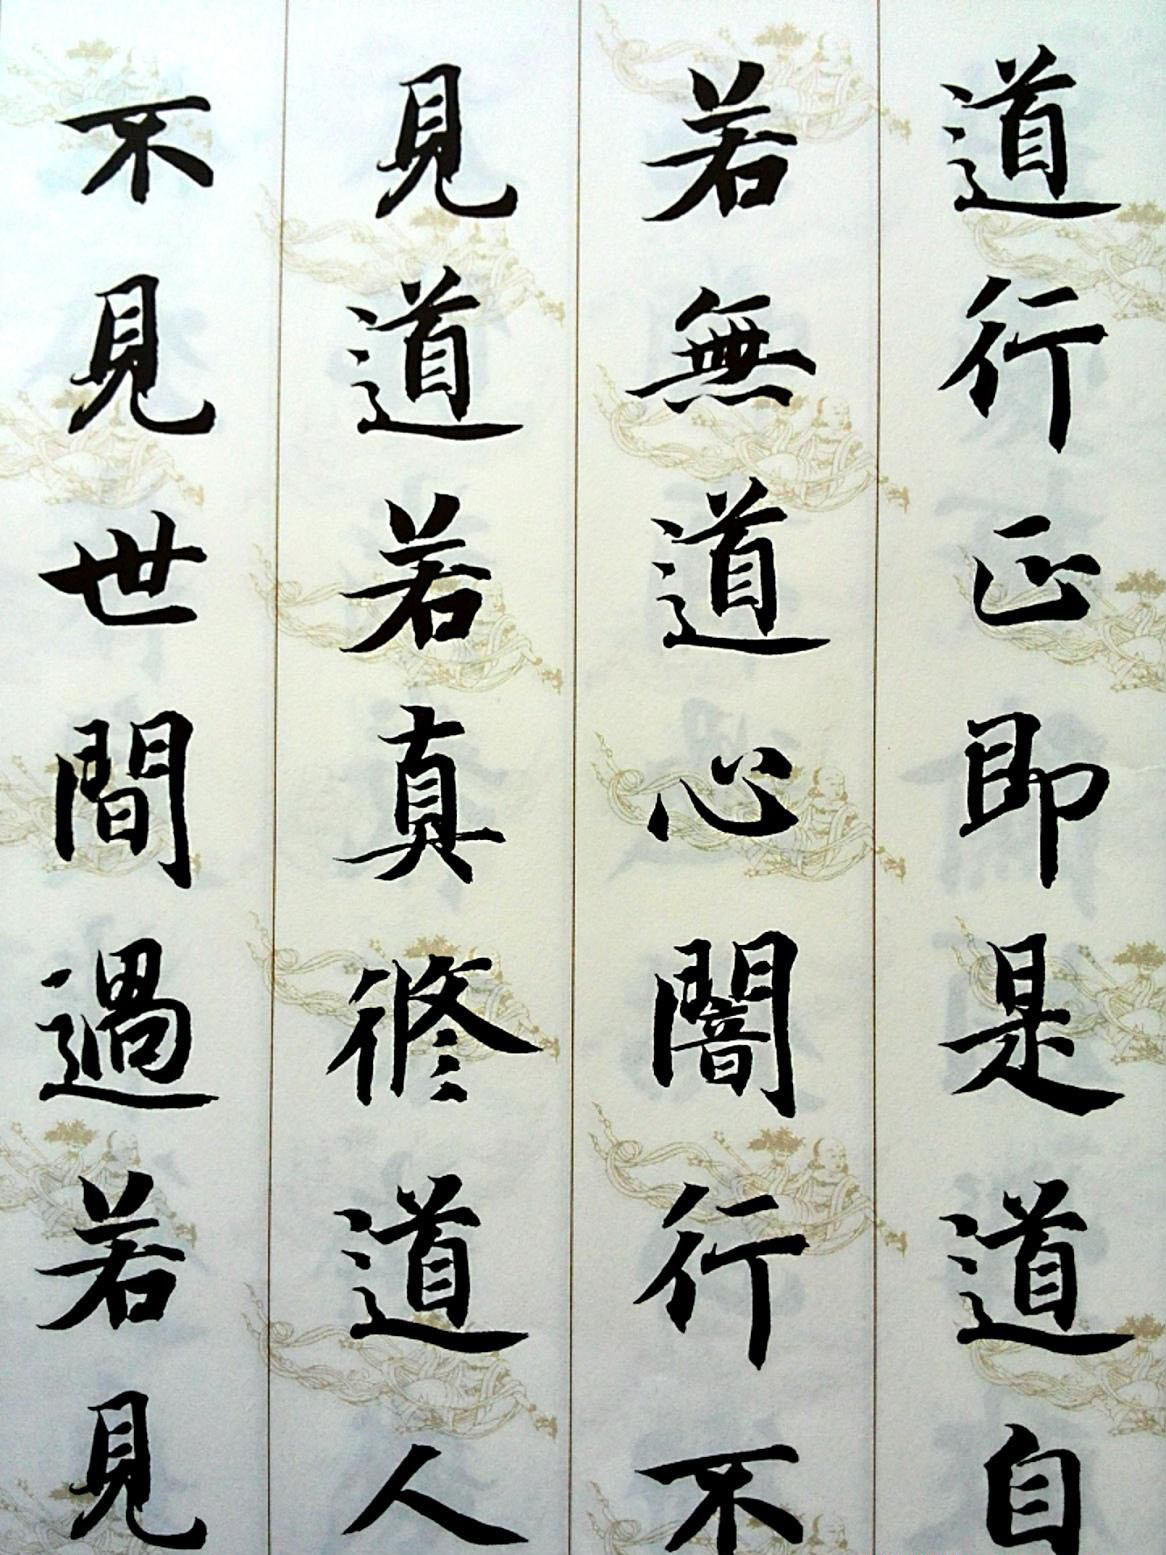 道行正即是道自
若無道心闇行不
見道若真修道人
不見世間過若見